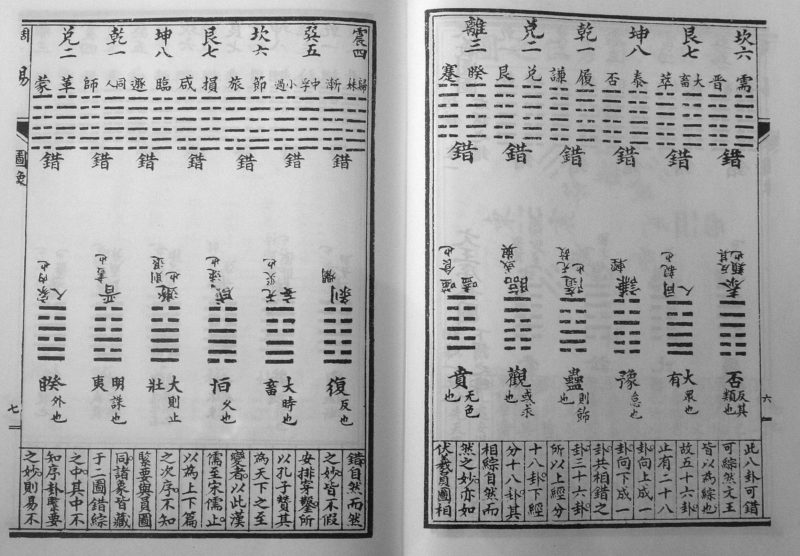 坎六
艮七
坤八
乾一
兌二
離三
需 晉
大畜 萃
泰 否
履 謙
兌 艮
睽 蹇
錯 錯 錯 錯 錯 錯
泰反其類也
同人親也
謙輕
隨无故也
臨或與
噬嗑食也
否反其類也
大有眾也
豫怠也
蠱則飭也
觀或求也
賁无色也
此八卦可錯
可綜然文王
皆以為綜也
故五十六卦
止有二十八
卦向上成一
卦向下成一
卦共相錯之
卦三十六卦
所以上經分
十八卦下經
分十八卦其
相綜自然而
然之妙亦如
伏羲員圖相
六
震四
巽五
坎六
艮七
坤八
乾一
兌二
歸妹 漸
中孚 小過
節 旅
損 咸
臨 遯
同人 師
革 蒙
錯 錯 錯 錯 錯 錯 錯
剝爛
无妄災也
咸速也
遯則退也
晉晝也
家人內也
復反也
大畜時也
恒久也
大壯則止
明夷誅也
睽外也
錯自然而然
之妙皆不假
安排穿鑿所
以孔子贊其
為天下之至
變者以此漢
儒至宋儒止
以為上下篇
之次序不知
緊要與員圖
同諸象皆藏
于二圖錯綜
之中其中不
知序卦緊要
之妙則易不
周易
圖象
七